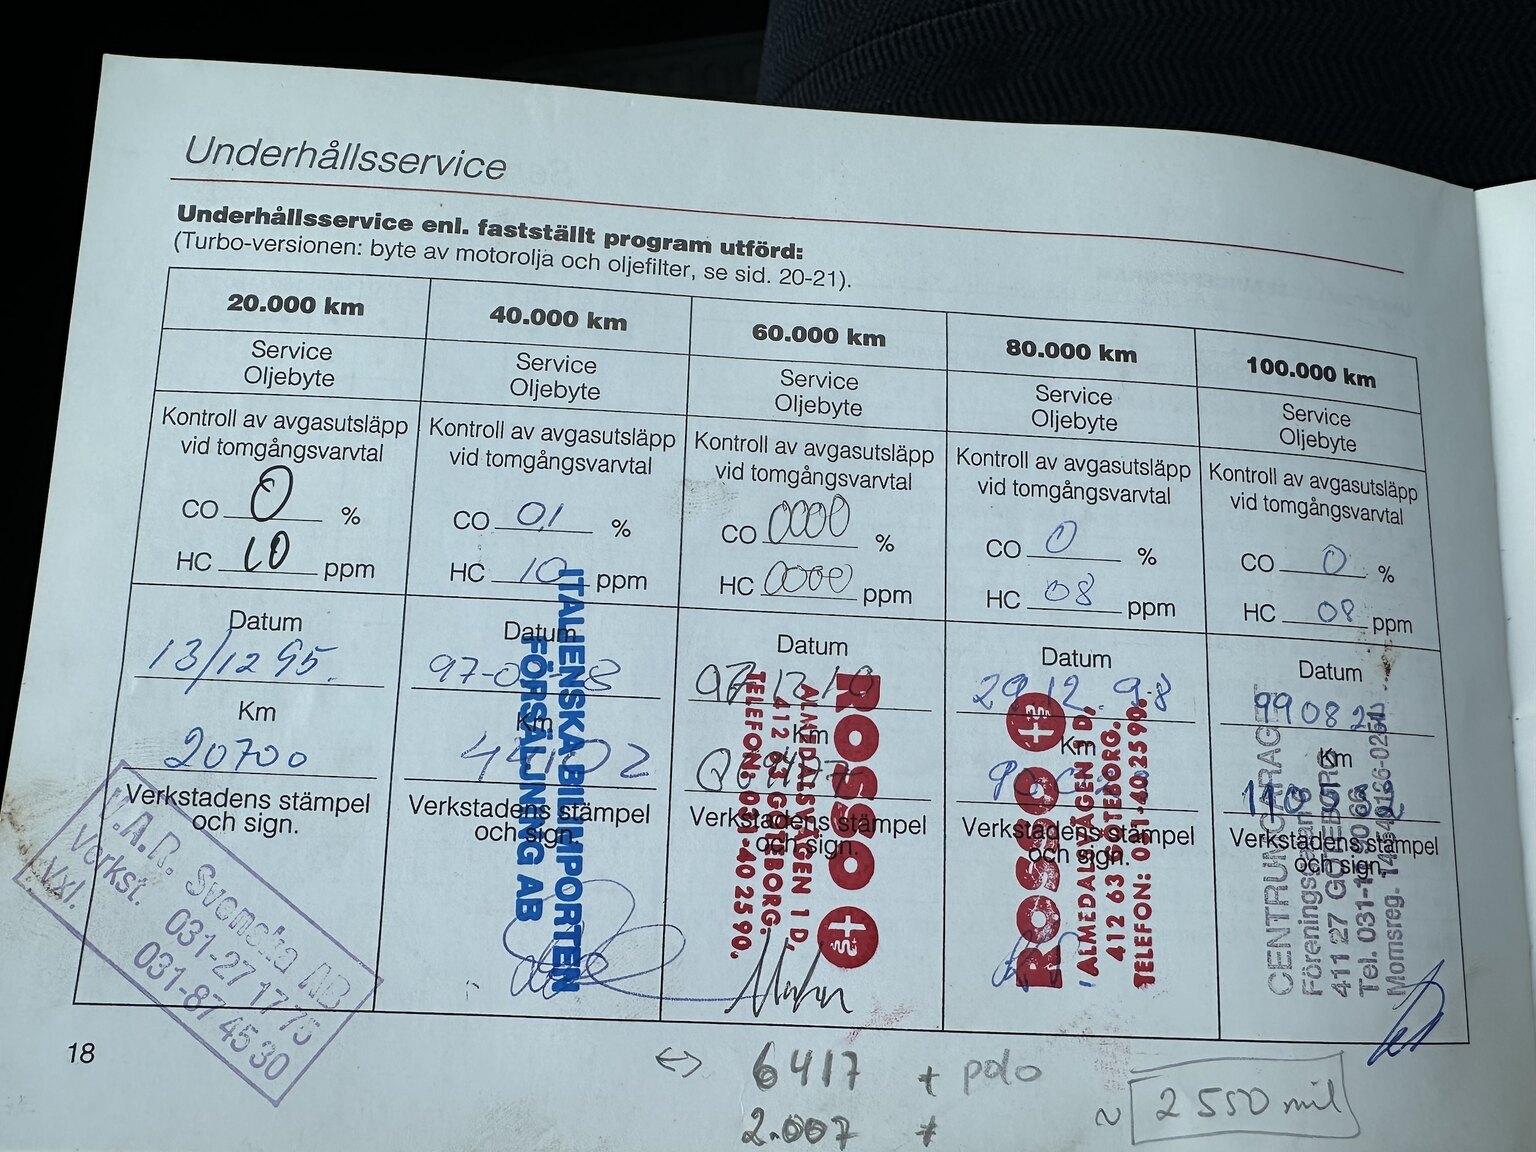 Underhållsservice
Underhållsservice enl. fastställt program utförd:
(Turbo-versionen: byte av motorolja och oljefilter, se sid. 20-21).
20.000 km
Service
Oljebyte
Kontroll av avgasutsläpp
vid tomgångsvarvtal
CO 0 %
HC 10 ppm
Datum
13/12 95.
Km
20700
Verkstadens stämpel
och sign.
Svenska AB
Verkst. 031-27 17 75
Vxl. 031-87 45 30
40.000 km
Service
Oljebyte
Kontroll av avgasutsläpp
vid tomgångsvarvtal
CO 0,1 %
HC 10 ppm
Datum
Km
Verkstadens stämpel
och sign.
ITALIENSKA BILIMPORTEN
FÖRSÄLJNING AB
60.000 km
Service
Oljebyte
Kontroll av avgasutsläpp
vid tomgångsvarvtal
CO 0000 %
HC 0000 ppm
Datum
97 12 10
Km
Verkstadens stämpel
och sign.
ROSSO
ALMEDALSVÄGEN 1 D,
412 63 GÖTEBORG.
TELEFON: 031-40 25 90.
80.000 km
Service
Oljebyte
Kontroll av avgasutsläpp
vid tomgångsvarvtal
CO 0 %
HC 08 ppm
Datum
29.12.98
Km
Verkstadens stämpel
och sign.
ROSSO
ALMEDALSVÄGEN 1 D,
412 63 GÖTEBORG.
TELEFON: 031-40 25 90.
100.000 km
Service
Oljebyte
Kontroll av avgasutsläpp
vid tomgångsvarvtal
CO 0 %
HC 08 ppm
Datum
Km
Verkstadens stämpel
och sign.
CENTRUMGARAGET
411 27 GÖTEBORG
Tel. 031-
Momsreg.
18
↔ 6417 + polo
2.007
~ 2 550 mil